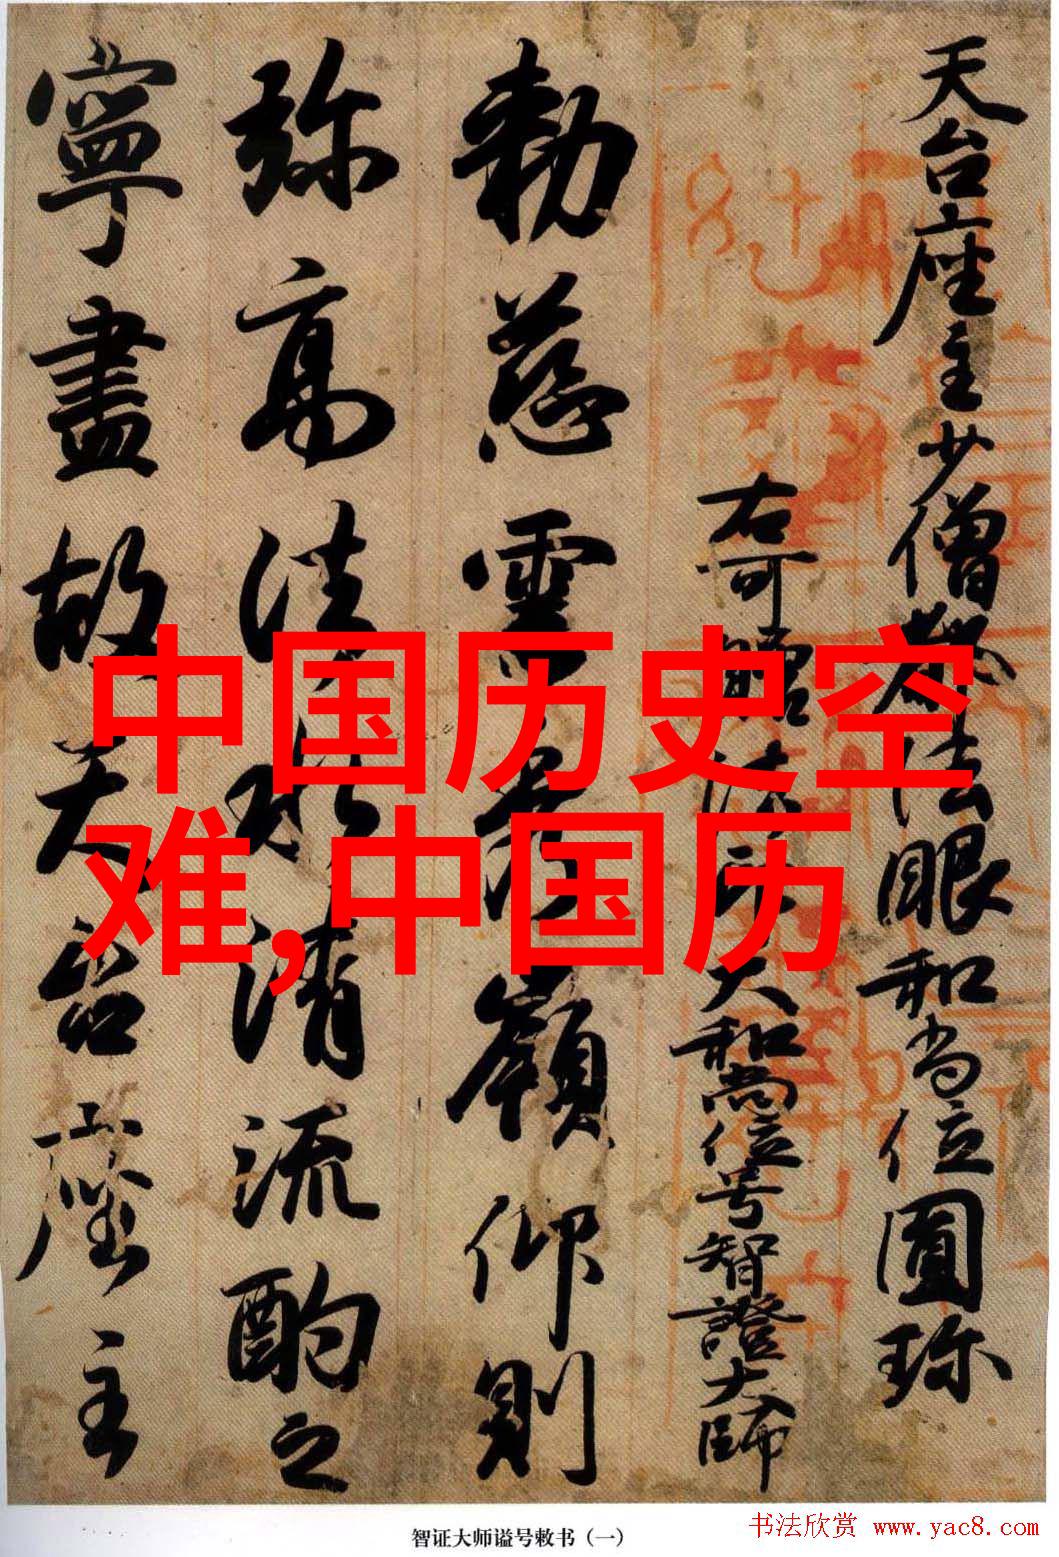 天台座主少僧都法眼和尚位圓珍
右可贈法印大和尚位号智證大師
勅慈雲秀嶺仰則
弥高法水清流酌之
寧盡故天台座主
中国历史空
难,中国历
智证大师谥号敕书（一）
书法欣赏 www.yac8.com